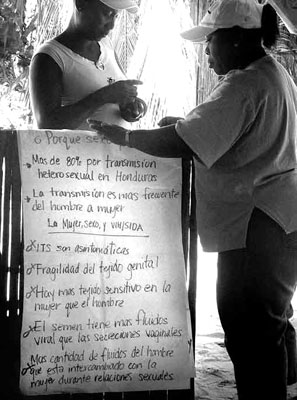 Porque sexo
Mas de 80% por transmision
heterosexual en Honduras
La transmision es mas frecuente
del hombre a mujer
La Mujer, sexo, y VIH/SIDA
ITS son asintomáticas
Fragilidad del tejido genital
Hay mas tejido sensitivo en la
mujer que el hombre
El semen tiene mas fluidos
viral que las secreciones vaginales
Mas cantidad de fluidos del hombre
que esta intercambiado con la
mujer durante relaciones sexuales